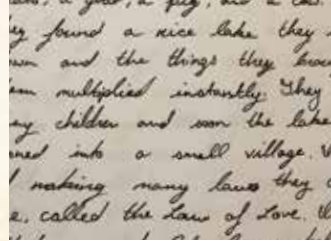 , a goat, a pig, and a cow.
ey found a nice lake they
own and the things they brou
em multiplied instantly. They
ny children and soon the lake
ned into a small village.
making many laws they
e, called the Law of Love.